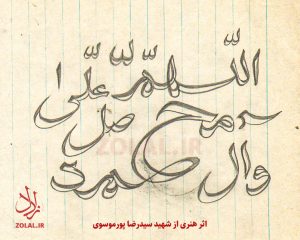 اللّهمّ صلّ علی
محمد وآل محمد
ZOLAL.IR
زلال
ZOLAL.IR
اثر هنری از شهید سیدرضا پورموسوی